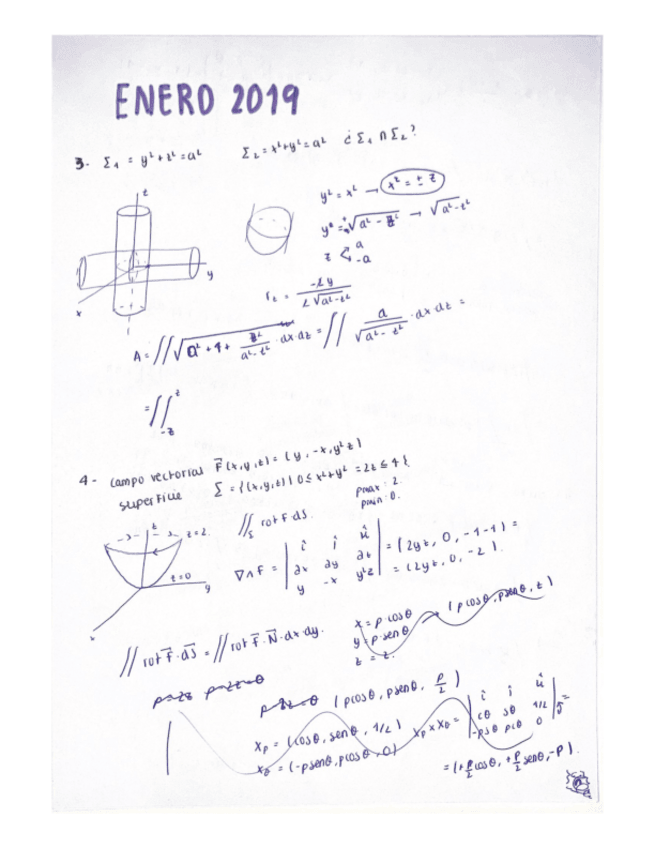 ENERO 2019
3- Σ₁ = y²+z²=a²    Σ₂ = x²+y²=a²    ¿ Σ₁ ∩ Σ₂?
y² = x² → x² = ± z
y² = √a² - z² → √a²-z²
z < a
-a
z
y
x
r_z = -2y / 2√a²-z²
A = ∬ √a² + 4 + z²/a²-z² · dx dz = ∬ a/√a²-z² · dx dz =
= ∬ z
-z
4- campo vectorial F⃗(x,y,z) = (y, -x, y²z)
superficie Σ = {(x,y,z) | 0 ≤ x²+y² = 2z ≤ 4}.
ρmax = 2.
ρmin = 0.
∬s rot F · dS.
z
z=2
z=0
y
x
∇∧F = | i j k ; ∂x ∂y ∂z ; y -x y²z | = (2yz, 0, -1-1) =
= (2yz, 0, -2).
∬ rot F⃗ · dS⃗ = ∬ rot F⃗ · N⃗ · dx dy.
x = ρ cosθ → (ρcosθ, ρsenθ, z)
y = ρ·senθ
z = z.
(ρcosθ, ρsenθ, ρ/2)
Xρ = (cosθ, senθ, 1/2)    Xρ × Xθ = | i j k ; cθ sθ 1/2 ; -ρsθ ρcθ 0 | =
Xθ = (-ρsenθ, ρcosθ, 0)
= (+ρ/2 cosθ, +ρ/2 senθ, -ρ).